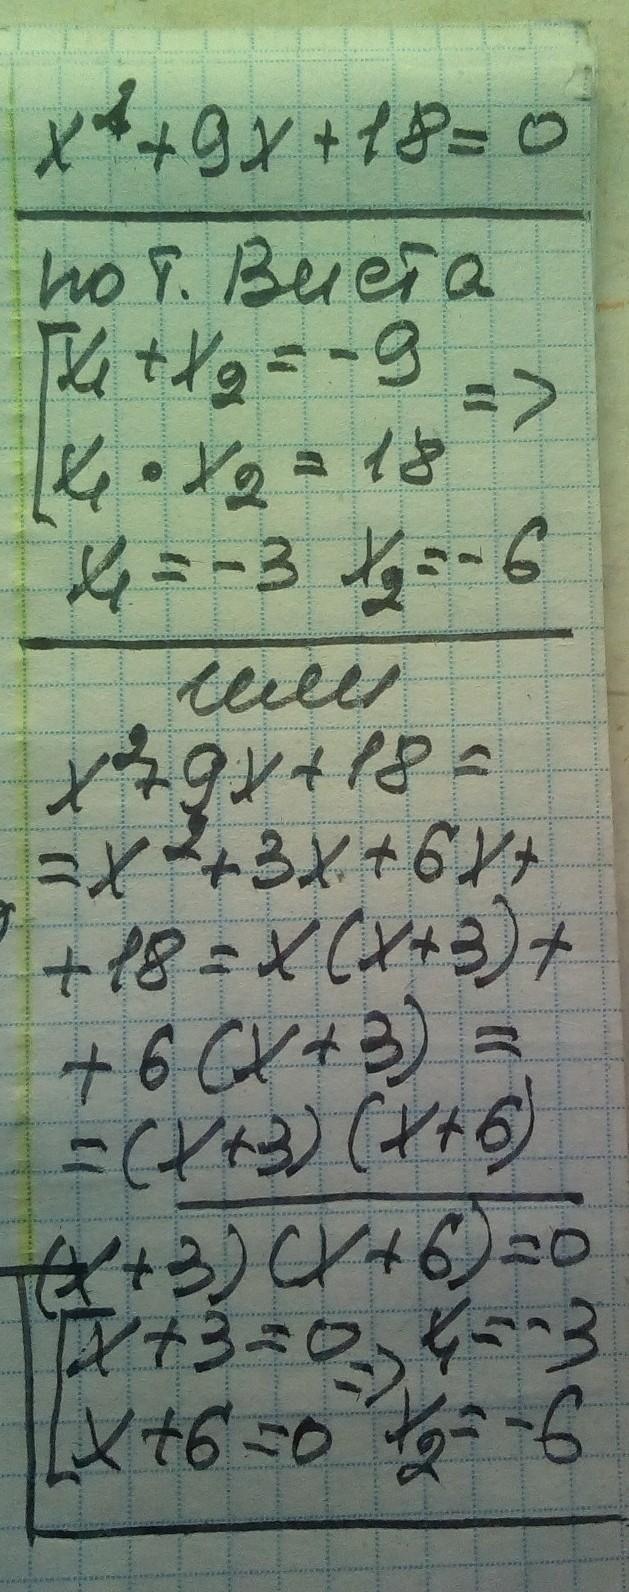 x²+9x+18=0
по т. Виета
[x₁+x₂=-9
=>
x₁·x₂=18
x₁=-3 x₂=-6
или
x²+9x+18=
=x²+3x+6x+
+18=x(x+3)+
+6(x+3)=
=(x+3)(x+6)
(x+3)(x+6)=0
[x+3=0 => x₁=-3
x+6=0 x₂=-6